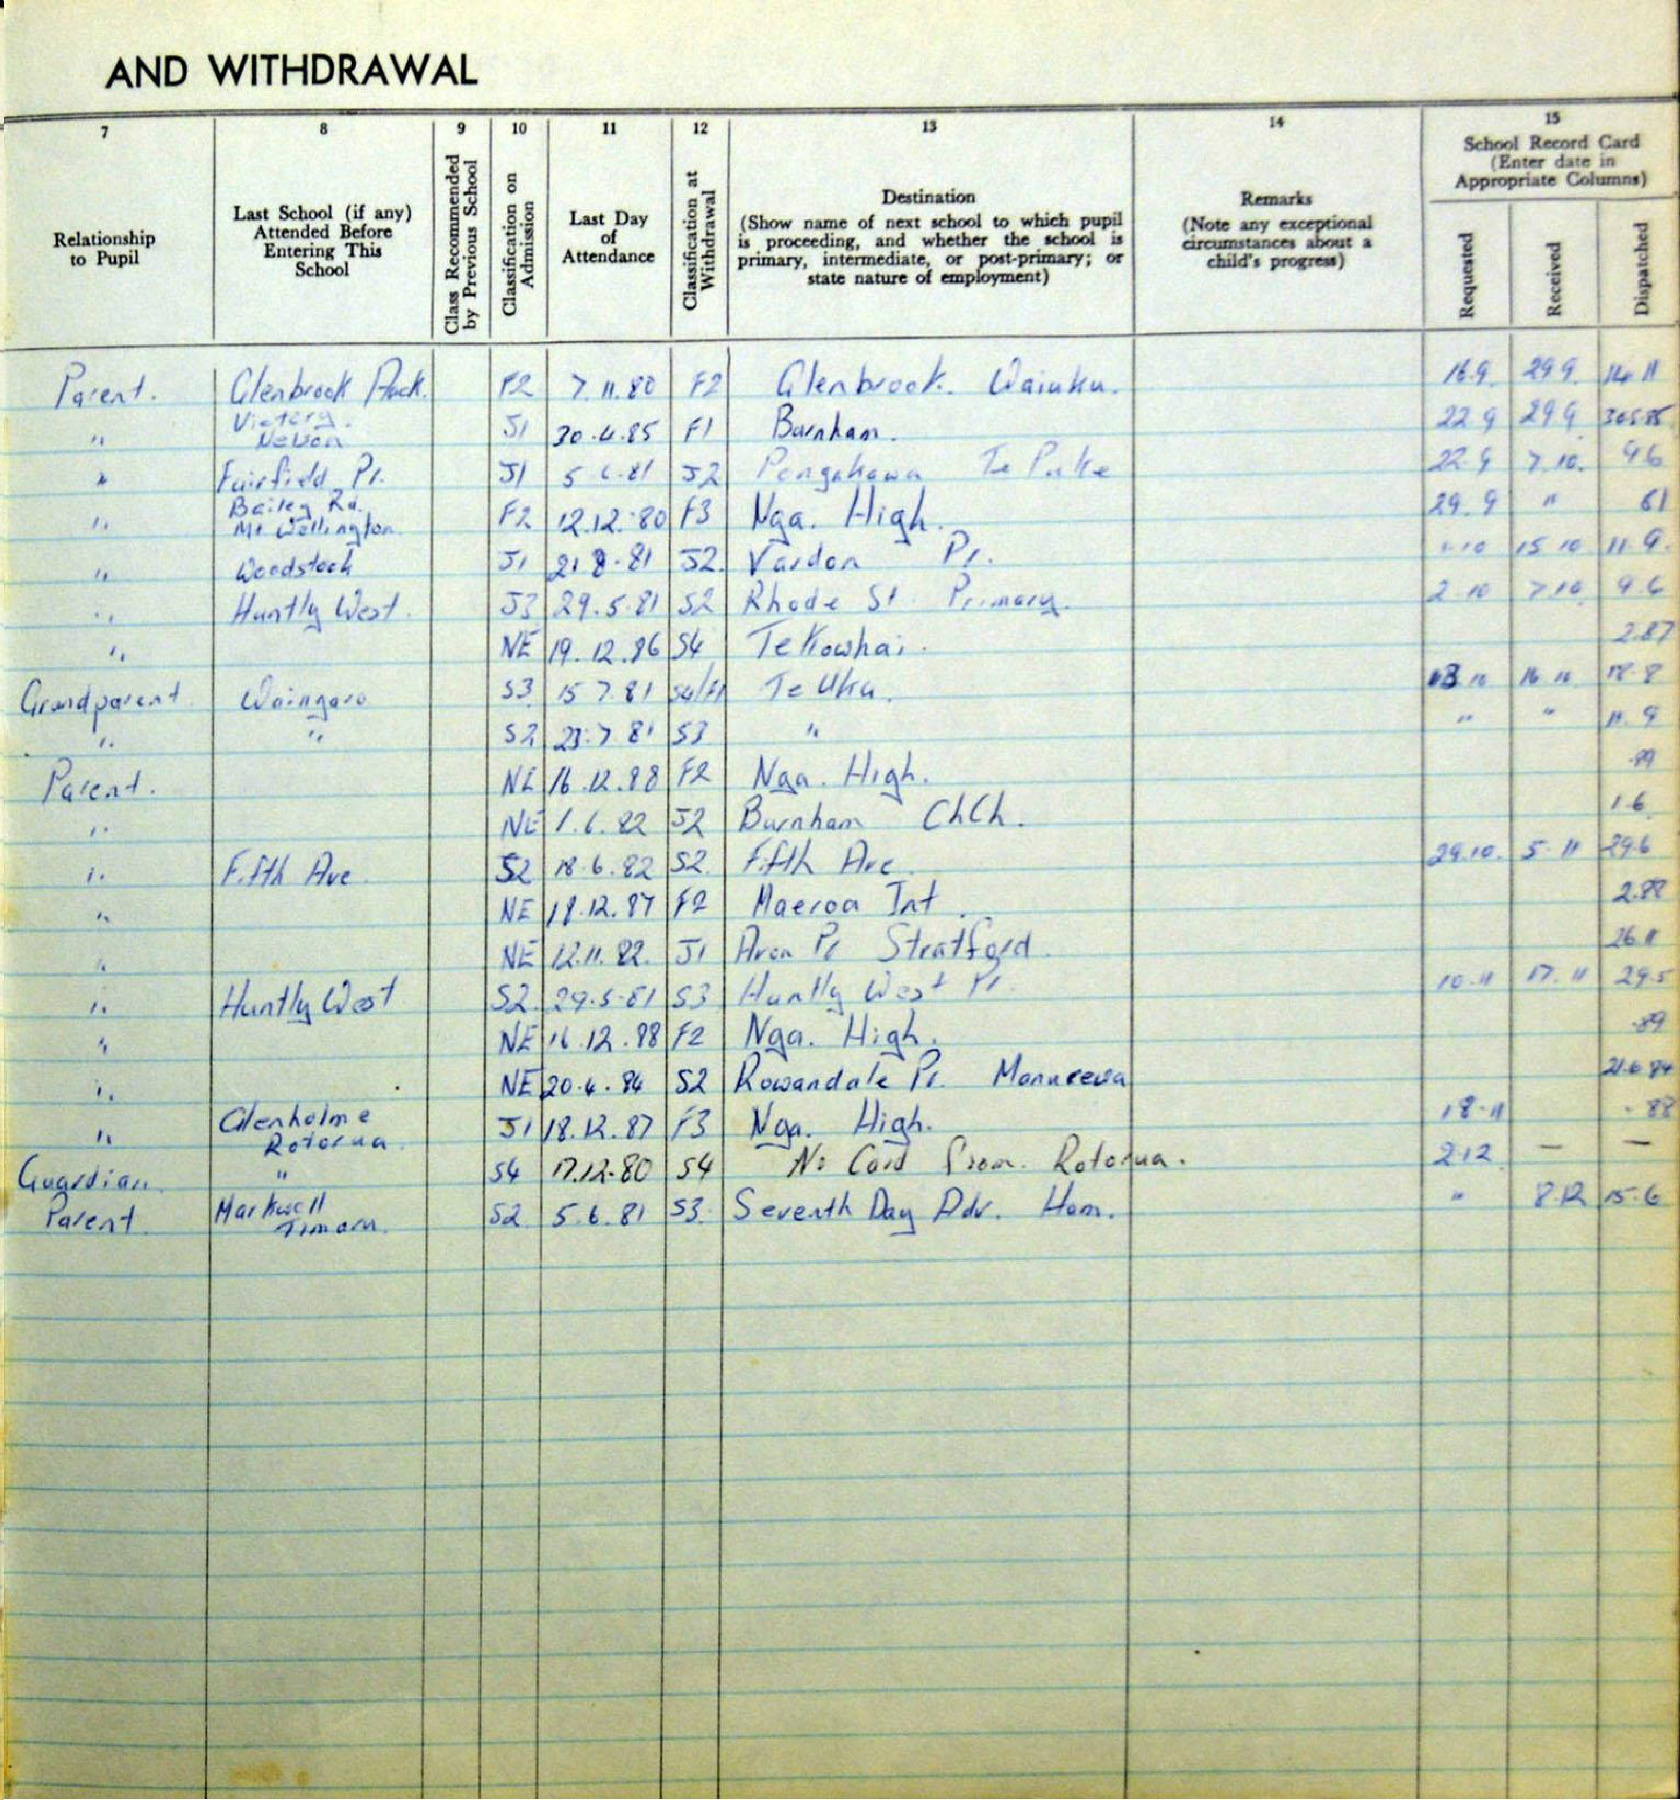 AND WITHDRAWAL
7 8 9 10 11 12 13 14 15
Relationship to Pupil
Last School (if any) Attended Before Entering This School
Class Recommended by Previous School
Classification on Admission
Last Day of Attendance
Classification at Withdrawal
Destination
(Show name of next school to which pupil is proceeding, and whether the school is primary, intermediate, or post-primary; or state nature of employment)
Remarks
(Note any exceptional circumstances about a child's progress)
School Record Card
(Enter date in Appropriate Columns)
Requested Received Dispatched
Parent. Glenbrook F2 7.11.80 F2 Glenbrook. Waiuku. 16.9. 29 9. 14 11
" Victory. Nelson J1 30.4.85 F1 Burnham. 22 9 29 9 30585
" Fairfield Pr. J1 5 6.81 J2 Pongakawa Te Puke 22.9 7.10. 9 6
" Bailey Rd. Mt Wellington. F2 12.12.80 F3 Nga. High. 29.9 " 81
" Woodstock J1 21 8.81 J2. Vardon Pr. 1.10 15 10 11.9.
" Huntly West. J3 29.5.81 S2 Rhode St. Primary. 2.10 7.10. 9.6
" NE 19.12.86 S4 Te Kowhai. 2.87
Grandparent Waingaro S3 15 7.81 S4/F1 Te Uku. 13 10 16 10 18.8
" " S2 23.7 81 S3 " " " 11.9
Parent. NE 16.12.88 F2 Nga. High. .89
" NE 1.6.82 J2 Burnham ChCh. 1.6
" Fifth Ave S2 18.6.82 S2 Fifth Ave 29.10. 5.11 29.6
" NE 18.12.87 F2 Maeroa Int. 2.88
" NE 12.11.82. J1 Avon Pr Stratford. 26 11
" Huntly West S2. 29.5.81 S3 Huntly West Pr. 10.11 17.11 29.5
" NE 16.12.88 F2 Nga. High. .89
" NE 20.6.84 S2 Rowandale Pr. Manurewa 21.6.84
" Glenholme Rotorua. J1 18.12.87 F3 Nga. High. 18.11 .88
Guardian. " S4 17.12.80 S4 No Card from Rotorua. 2.12 — —
Parent. Markwell Timaru. S2 5.6.81 S3. Seventh Day Adv. Ham. " 8.12 15.6